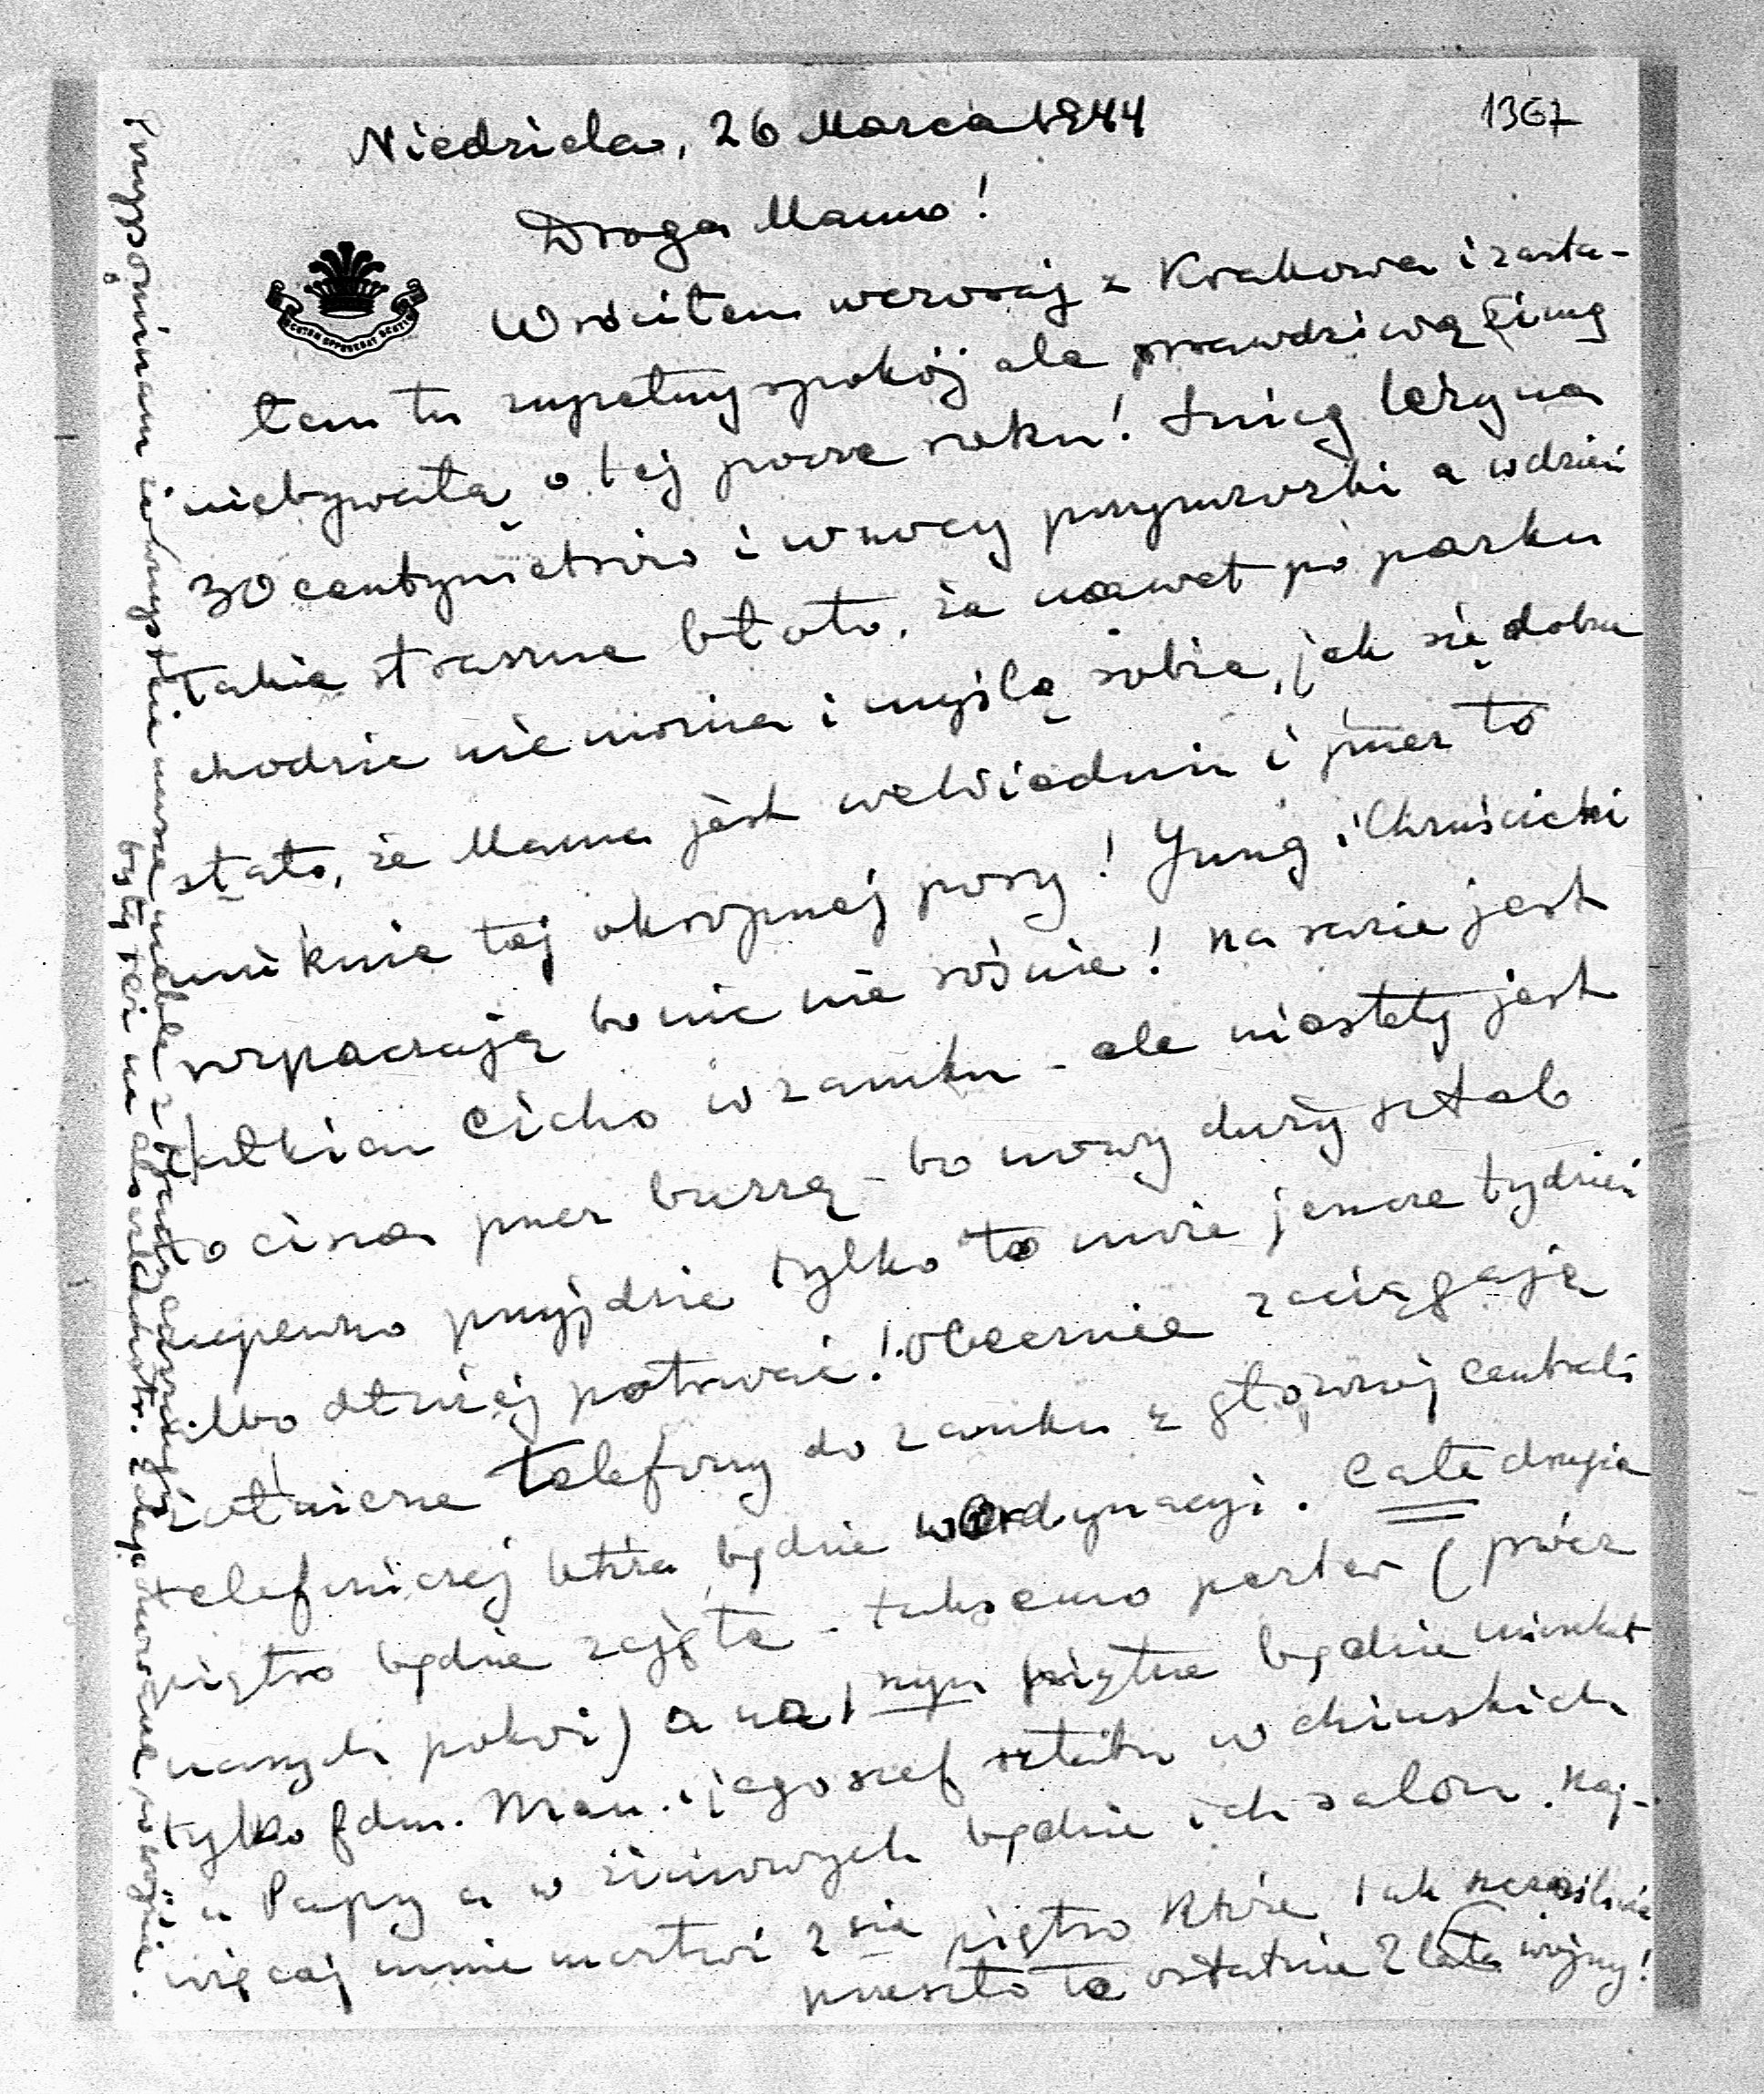 1367
Niedziela, 26 Marca 1944
Droga Mamo!
Wróciłem wczoraj z Krakowa i zasta-
łem tu zupełny spokój ale prawdziwą zimę
niebywałą o tej porze roku! Śnieg leży na
30 centymetrów i w nocy przymrozki a w dzień
takie straszne błoto, że nawet po parku
chodzić nie można i myślę sobie, jak się dobrze
stało, że Mama jest we Wiedniu i przez to
uniknie tej okropnej pory! Jung i Chruścicki
rozpaczają bo nic nie rośnie! Na razie jest
całkiem cicho w zamku - ale niestety jest
to cisza przez burzą - bo nowy duży sztab
na pewno przyjdzie tylko to może jeszcze tydzień
albo dłużej potrwać! Obecnie zaciągają
żołnierze telefony do zamku z głównej centrali
telefonicznej która będzie w Ordynacyi. Całe drugie
piętro będzie zajęte - tak samo parter (prócz
naszych pokoi) a na 1 szym piętrze będzie mieszkał
tylko fdm. Man. i jego szef sztabu w chińskich
i u Papy a w zimowych będzie ich salon. Naj-
więcej mnie martwi 2 gie piętro które tak szczęśliwie
przeszło te ostatnie 2 lata wojny!
Przypominam że wszystkie nasze meble z
były też na
po wojnie.